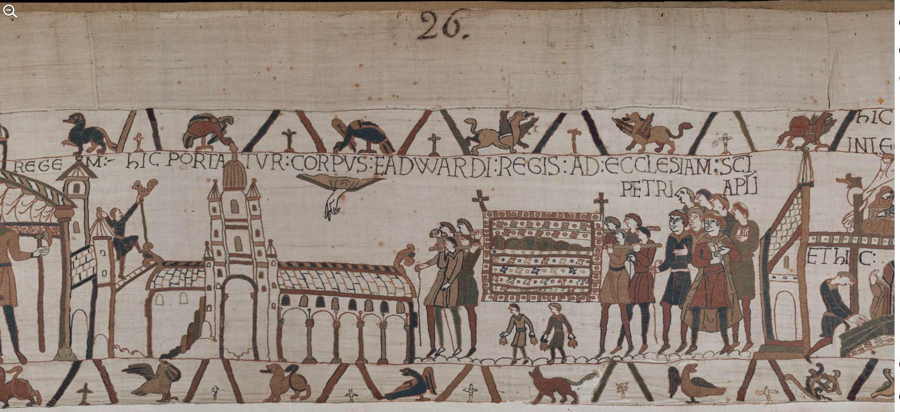 26.
REGE M:- hIC PORTATVR:CORPVS:EADWARDI:REGIS:AD:ECCLESIAM:SCI
PETRI APLI
hIC
INLE
ET hIC: